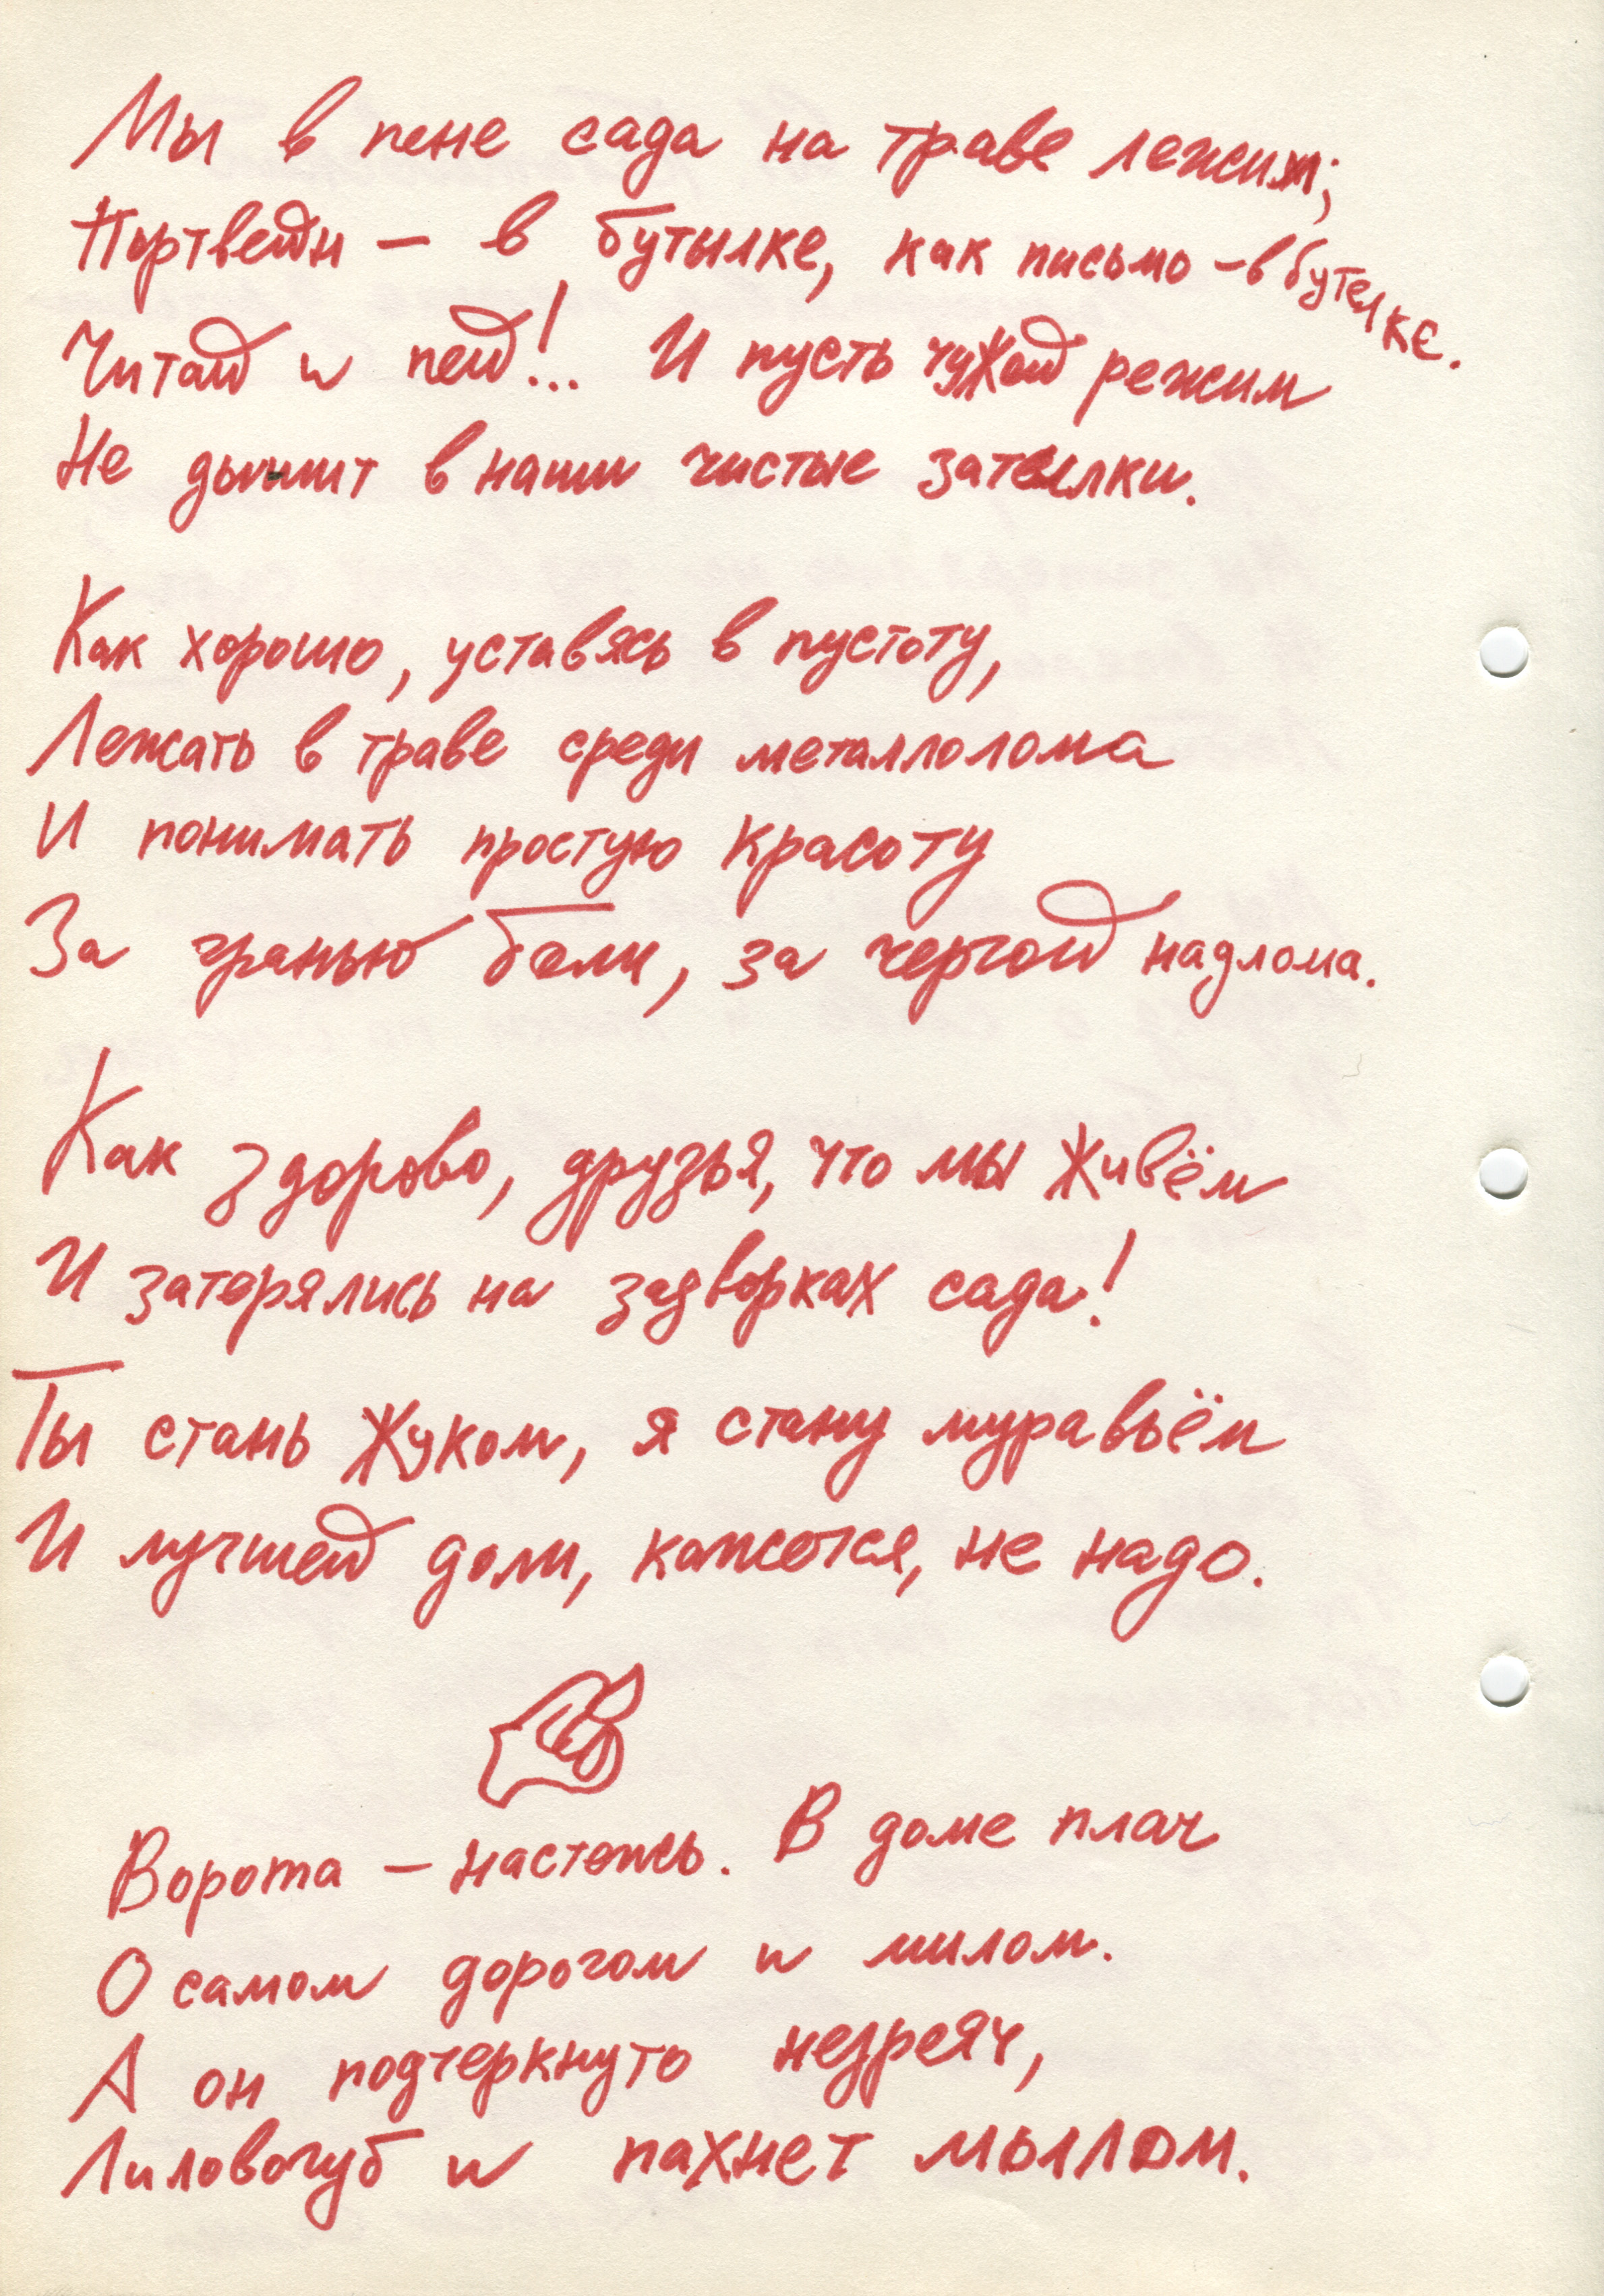 Мы в пене сада на траве лежим;
Портвейн – в бутылке, как письмо – в бутылке.
Читай и пей!... И пусть чужой режим
Не дышит в наши чистые затылки.
Как хорошо, уставясь в пустоту,
Лежать в траве среди металлолома
И понимать простую красоту
За гранью боли, за чертой надлома.
Как здорово, друзья, что мы живём
И затерялись на задворках сада!
Ты стань жуком, я стану муравьём
И лучшей доли, кажется, не надо.
Ворота – настежь. В доме плач
О самом дорогом и милом.
А он подчеркнуто незреяч,
Лиловогуб и пахнет мылом.